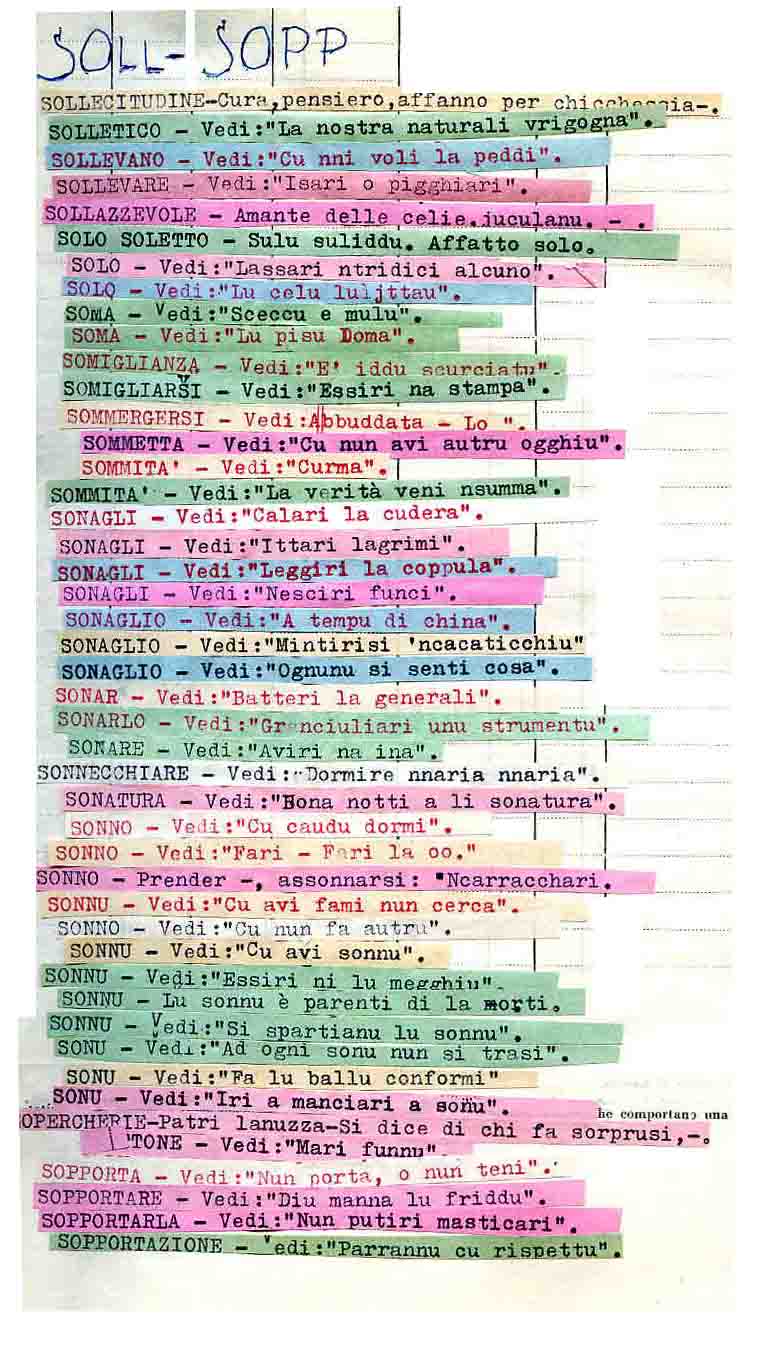 SOLL- SOPP
SOLLECITUDINE-Cura,pensiero,affanno per chicchessia-.
SOLLETICO - Vedi:"La nostra naturali vrigogna".
SOLLEVANO - Vedi:"Cu nni voli la peddi".
SOLLEVARE - Vedi:"Isari o pigghiari".
SOLLAZZEVOLE - Amante delle celie.juculanu. - .
SOLO SOLETTO - Sulu suliddu. Affatto solo.
SOLO - Vedi:"Lassari ntridici alcuno".
SOLO - Vedi:"Lu celu lu jttau".
SOMA - Vedi:"Sceccu e mulu".
SOMA - Vedi:"Lu pisu Doma".
SOMIGLIANZA - Vedi:"E' iddu scurciatu".
SOMIGLIARSI - Vedi:"Essiri na stampa".
SOMMERGERSI - Vedi:Abbuddata - Lo ".
SOMMETTA - Vedi:"Cu nun avi autru ogghiu".
SOMMITA' - Vedi:"Curma".
SOMMITA' - Vedi:"La verità veni nsumma".
SONAGLI - Vedi:"Calari la cudera".
SONAGLI - Vedi:"Ittari lagrimi".
SONAGLI - Vedi:"Leggiri la coppula".
SONAGLI - Vedi:"Nesciri funci".
SONAGLIO - Vedi:"A tempu di china".
SONAGLIO - Vedi:"Mintirisi 'ncacaticchiu"
SONAGLIO - Vedi:"Ognunu si senti cosa".
SONAR - Vedi:"Batteri la generali".
SONARLO - Vedi:"Granciuliari unu strumentu".
SONARE - Vedi:"Aviri na ina".
SONNECCHIARE - Vedi:"Dormire nnaria nnaria".
SONATURA - Vedi:"Bona notti a li sonatura".
SONNO - Vedi:"Cu caudu dormi".
SONNO - Vedi:"Fari - Fari la oo."
SONNO - Prender -, assonnarsi: "Ncarracchari.
SONNU - Vedi:"Cu avi fami nun cerca".
SONNO - Vedi:"Cu nun fa autru".
SONNU - Vedi:"Cu avi sonnu".
SONNU - Vedi:"Essiri ni lu megghiu".
SONNU - Lu sonnu è parenti di la morti.
SONNU - Vedi:"Si spartianu lu sonnu".
SONU - Vedi:"Ad ogni sonu nun si trasi".
SONU - Vedi:"Fa lu ballu conformi"
SONU - Vedi:"Iri a manciari a sonu".
he comportano una
OPERCHERIE-Patri lanuzza-Si dice di chi fa sorprusi,-.
TONE - Vedi:"Mari funnu"
SOPPORTA - Vedi:"Nun porta, o nun teni".
SOPPORTARE - Vedi:"Diu manna lu friddu".
SOPPORTARLA - Vedi:"Nun putiri masticari".
SOPPORTAZIONE - Vedi:"Parrannu cu rispettu".